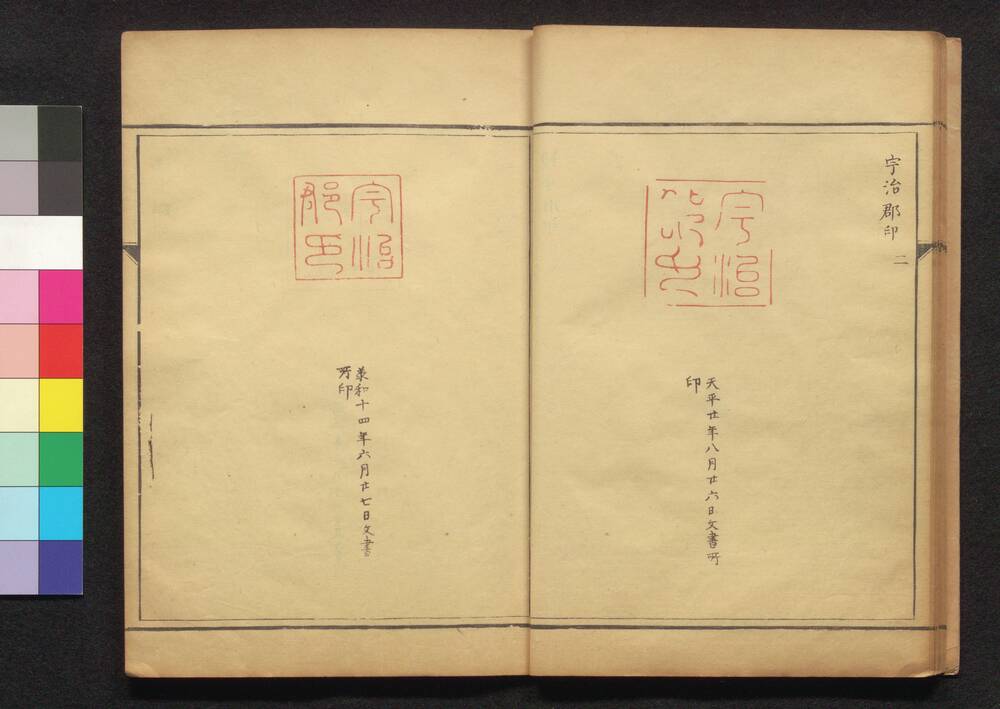 宇治郡印 二
宇治
郡印
天平廿年八月廿六日文書所
印
宇治
郡印
承和十四年六月廿七日文書
所印